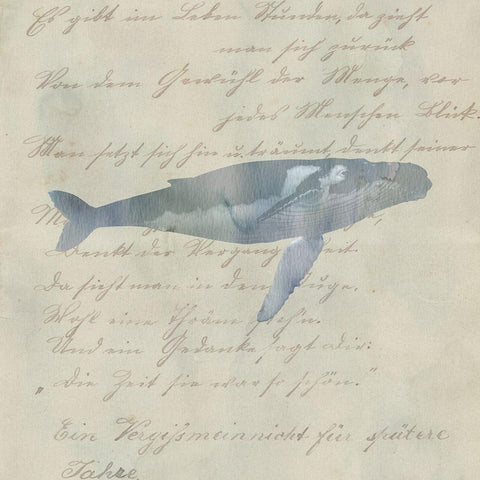 Es gibt im Leben Stunden, da zieht
man sich zurück
Von dem Gewühl der Menge, vor
jedes Menschen Blick.
Man setzt sich hin u. träumt, denkt seiner
Denkt der Vergang eit.
Da sieht man in dem uge,
Wohl eine Thräm steh'n.
Und ein Gedanke sagt Dir:
„Die Zeit sie war so schön.“
Ein Vergißmeinnicht für spätere
Jahre.